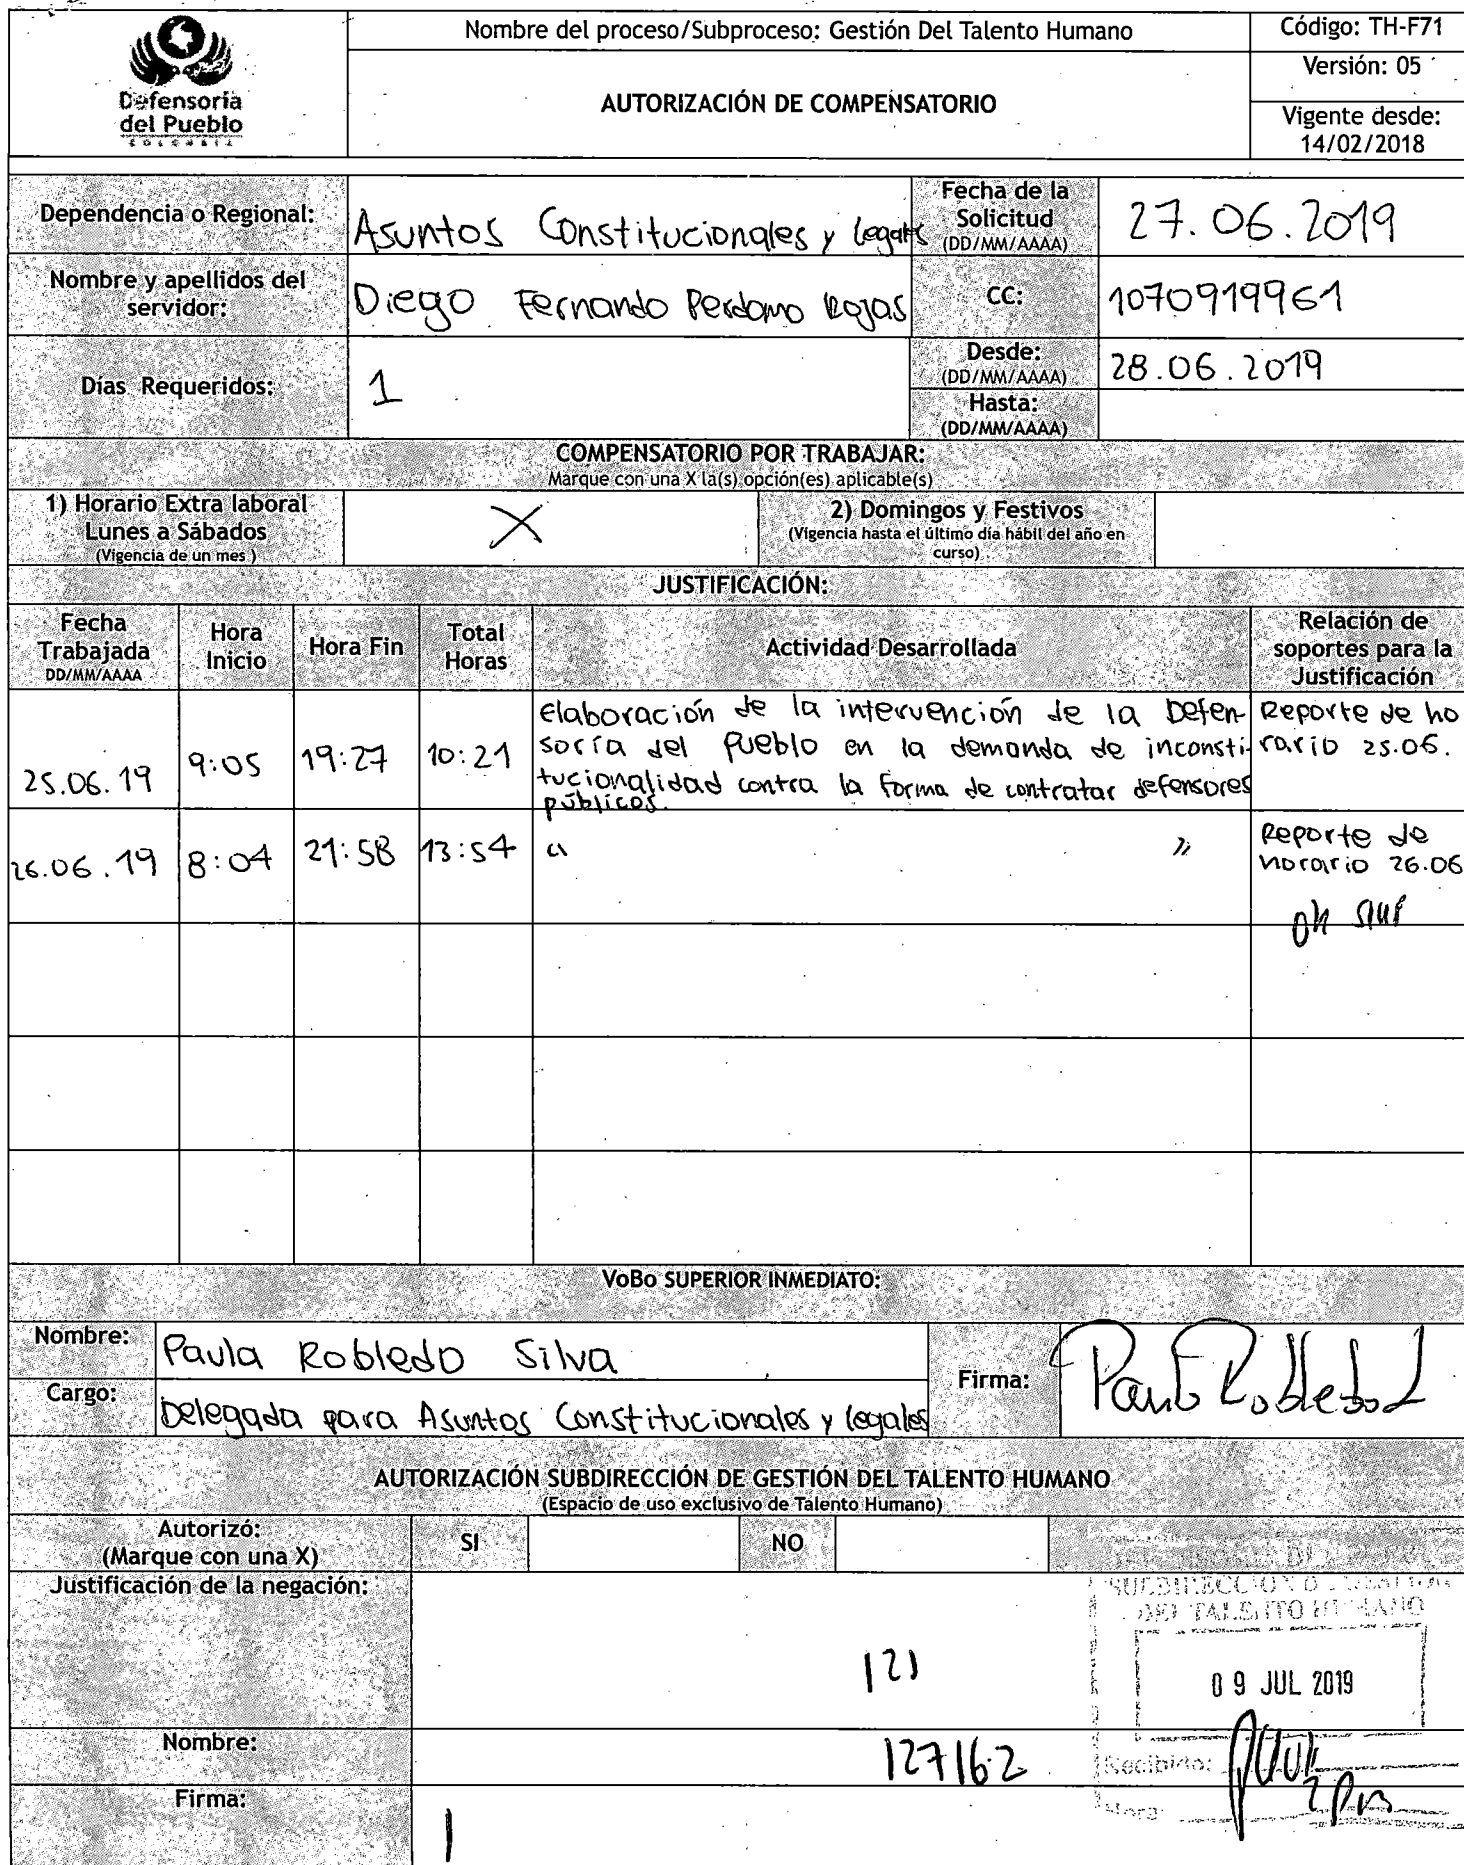 Defensoría
del Pueblo
COLOMBIA
Nombre del proceso/Subproceso: Gestión Del Talento Humano
AUTORIZACIÓN DE COMPENSATORIO
Código: TH-F71
Versión: 05
Vigente desde:
14/02/2018
Dependencia o Regional:
Asuntos Constitucionales y legales
Fecha de la
Solicitud
(DD/MM/AAAA)
27.06.2019
Nombre y apellidos del
servidor:
Diego Fernando Perdomo Rojas
CC:
1070919961
Días Requeridos:
1
Desde:
(DD/MM/AAAA)
28.06.2019
Hasta:
(DD/MM/AAAA)
COMPENSATORIO POR TRABAJAR:
Marque con una X la(s) opción(es) aplicable(s)
1) Horario Extra laboral
Lunes a Sábados
(Vigencia de un mes )
X
2) Domingos y Festivos
(Vigencia hasta el último día hábil del año en
curso)
JUSTIFICACIÓN:
Fecha
Trabajada
DD/MM/AAAA
Hora
Inicio
Hora Fin
Total
Horas
Actividad Desarrollada
Relación de
soportes para la
Justificación
25.06.19
9:05
19:27
10:21
Elaboración de la intervención de la Defen-
soría del Pueblo en la demanda de inconsti-
tucionalidad contra la forma de contratar defensores
públicos.
Reporte de ho
rario 25.06.
26.06.19
8:04
21:58
13:54
"                    "
Reporte de
horario 26.06
VoBo SUPERIOR INMEDIATO:
Nombre:
Paula Robledo Silva
Cargo:
Delegada para Asuntos Constitucionales y legales
Firma:
Paula Robledo
AUTORIZACIÓN SUBDIRECCIÓN DE GESTIÓN DEL TALENTO HUMANO
(Espacio de uso exclusivo de Talento Humano)
Autorizó:
(Marque con una X)
SI
NO
Justificación de la negación:
121
SUBDIRECCION DE GESTION
DEL TALENTO HUMANO
09 JUL 2019
Nombre:
127162
Recibido:
Firma:
Hora: